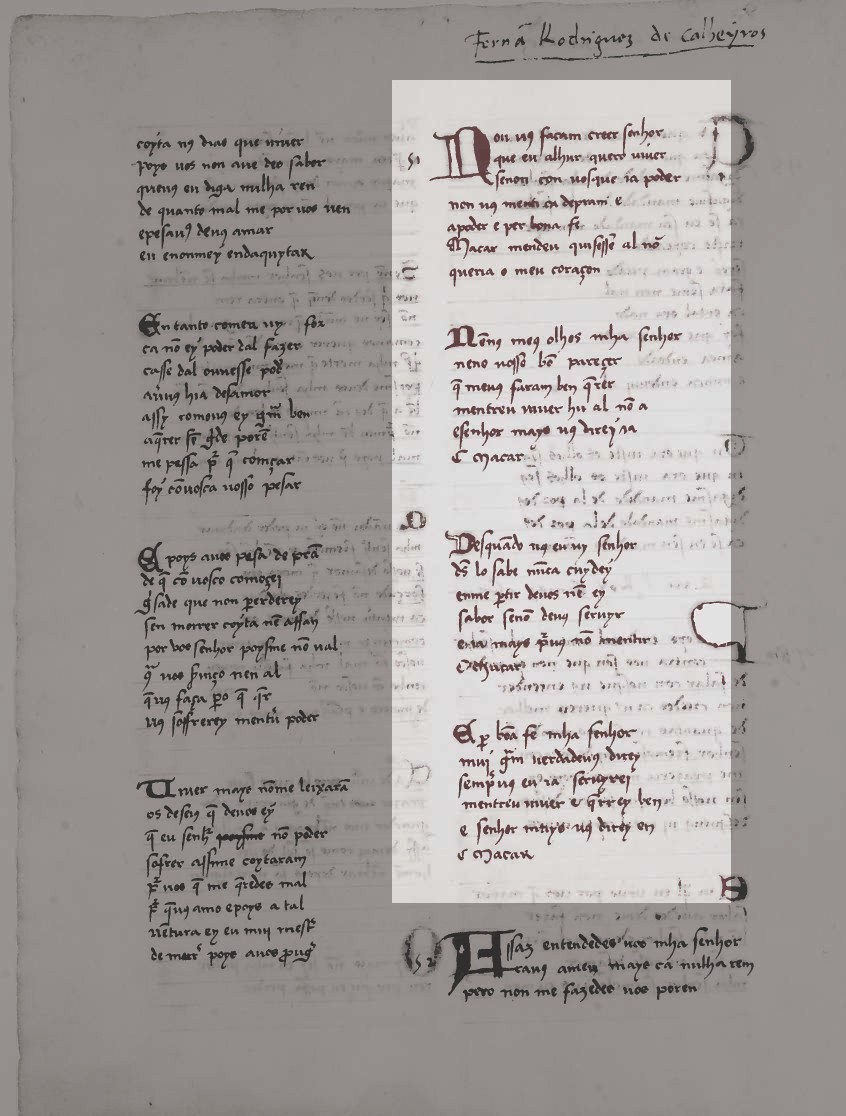 Fernã Rodriguez de Calheyros
coyta nȝ dias que uiuer
poys uos non aue deo sabor
queuȝ eu diga nulha ren
de quanto mal me por uos uen
epesauȝ deuȝ amar
eu enonmey endaquytar
En tanto comeu uy for
ca nõ ey poder dal fazer
casse dal ouuesse pod̃
assy comouȝ ey grã ben
me pessa pr̃ q̃ começar
foy cõuosca uosso pesar
A poys auos pesa de prã
de q̃ cõ uosco comecei
g̃sade que non perderey
sen morrer coyta nẽ affan
por uos senhor poysme nõ ual
nen al
q̃uȝ faça po q̃ q̃r
uȝ soffrerey mentr̃ poder
Uiuer mays nõme leixarã
os deseiȝ q̃ deuos ey
q̃ eu senhr̃ nõ poder
sofrer assyme coytaram
pr̃ uos q̃ me q̃redes mal
pr̃ q̃uȝ amo epoys a tal
uentura ey eu mui mest̃
de morr̃ poys auos proug̃
51
Non uȝ façam creer senhor
que eu alhur quero uiuer
senon con uosque ia poder
non uȝ menti ca depram e
apoder e per bona fe
Macar mendeu quisesse al nõ
queria o meu coraçon
Nenȝ meȝ olhos mha senhor
neno uosso bõ pareçer
q̃ meuȝ faram ben q̃rer
mentreu uiuer hu al nõ a
esenhor mays uȝ direy ia
C Macar
Desquãdo uȝ eu uy senhor
dš lo sabe nũca cuydey
enme partir deuos nẽ ey
sabor senõ deuȝ seruyr
e ia mays pr̃uȝ nõ mentir
C Macar
A p̃ bõa fe mha senhor
mui grã uerdadeuȝ direy
sempr̃uȝ eu ia seruyrei
mentreu uiuer e q̃rrey ben
e senhor mays uȝ direy en
C Macar
52
Assaz entendedes uos mha senhor
cauȝ ameu mays ca nulha rem
pero non me fazedes uos poren